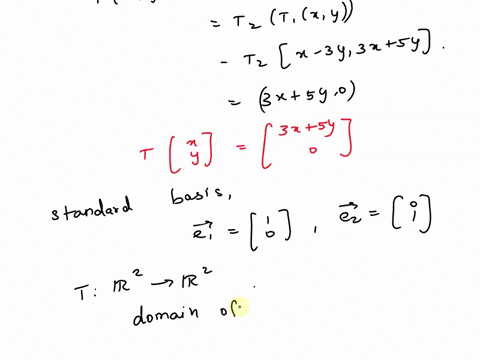 = T₂ (T₁(x,y))
- T₂ [x-3y, 3x+5y].
= (3x+5y,0)
T [x y] = [3x+5y 0]
standard basis,
e₁ = [1 0], e₂ = [0 1]
T: ℝ² → ℝ².
domain of